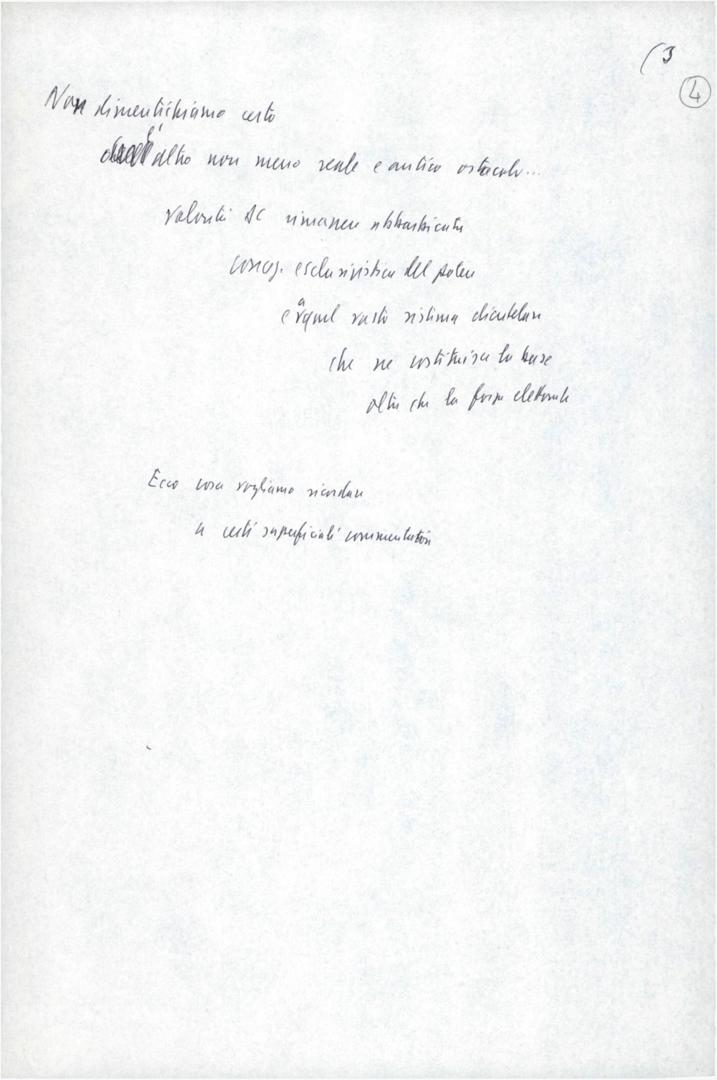 (3
4
Non dimentichiamo certo
l'altro non meno reale e antico ostacolo...
volontà DC rimanere abbarbicata
concez. esclusivistica del potere
e a quel vasto sistema clientelare
che ne costituisce la base
oltre che la forza elettorale
Ecco cosa vogliamo ricordare
a certi superficiali commentatori